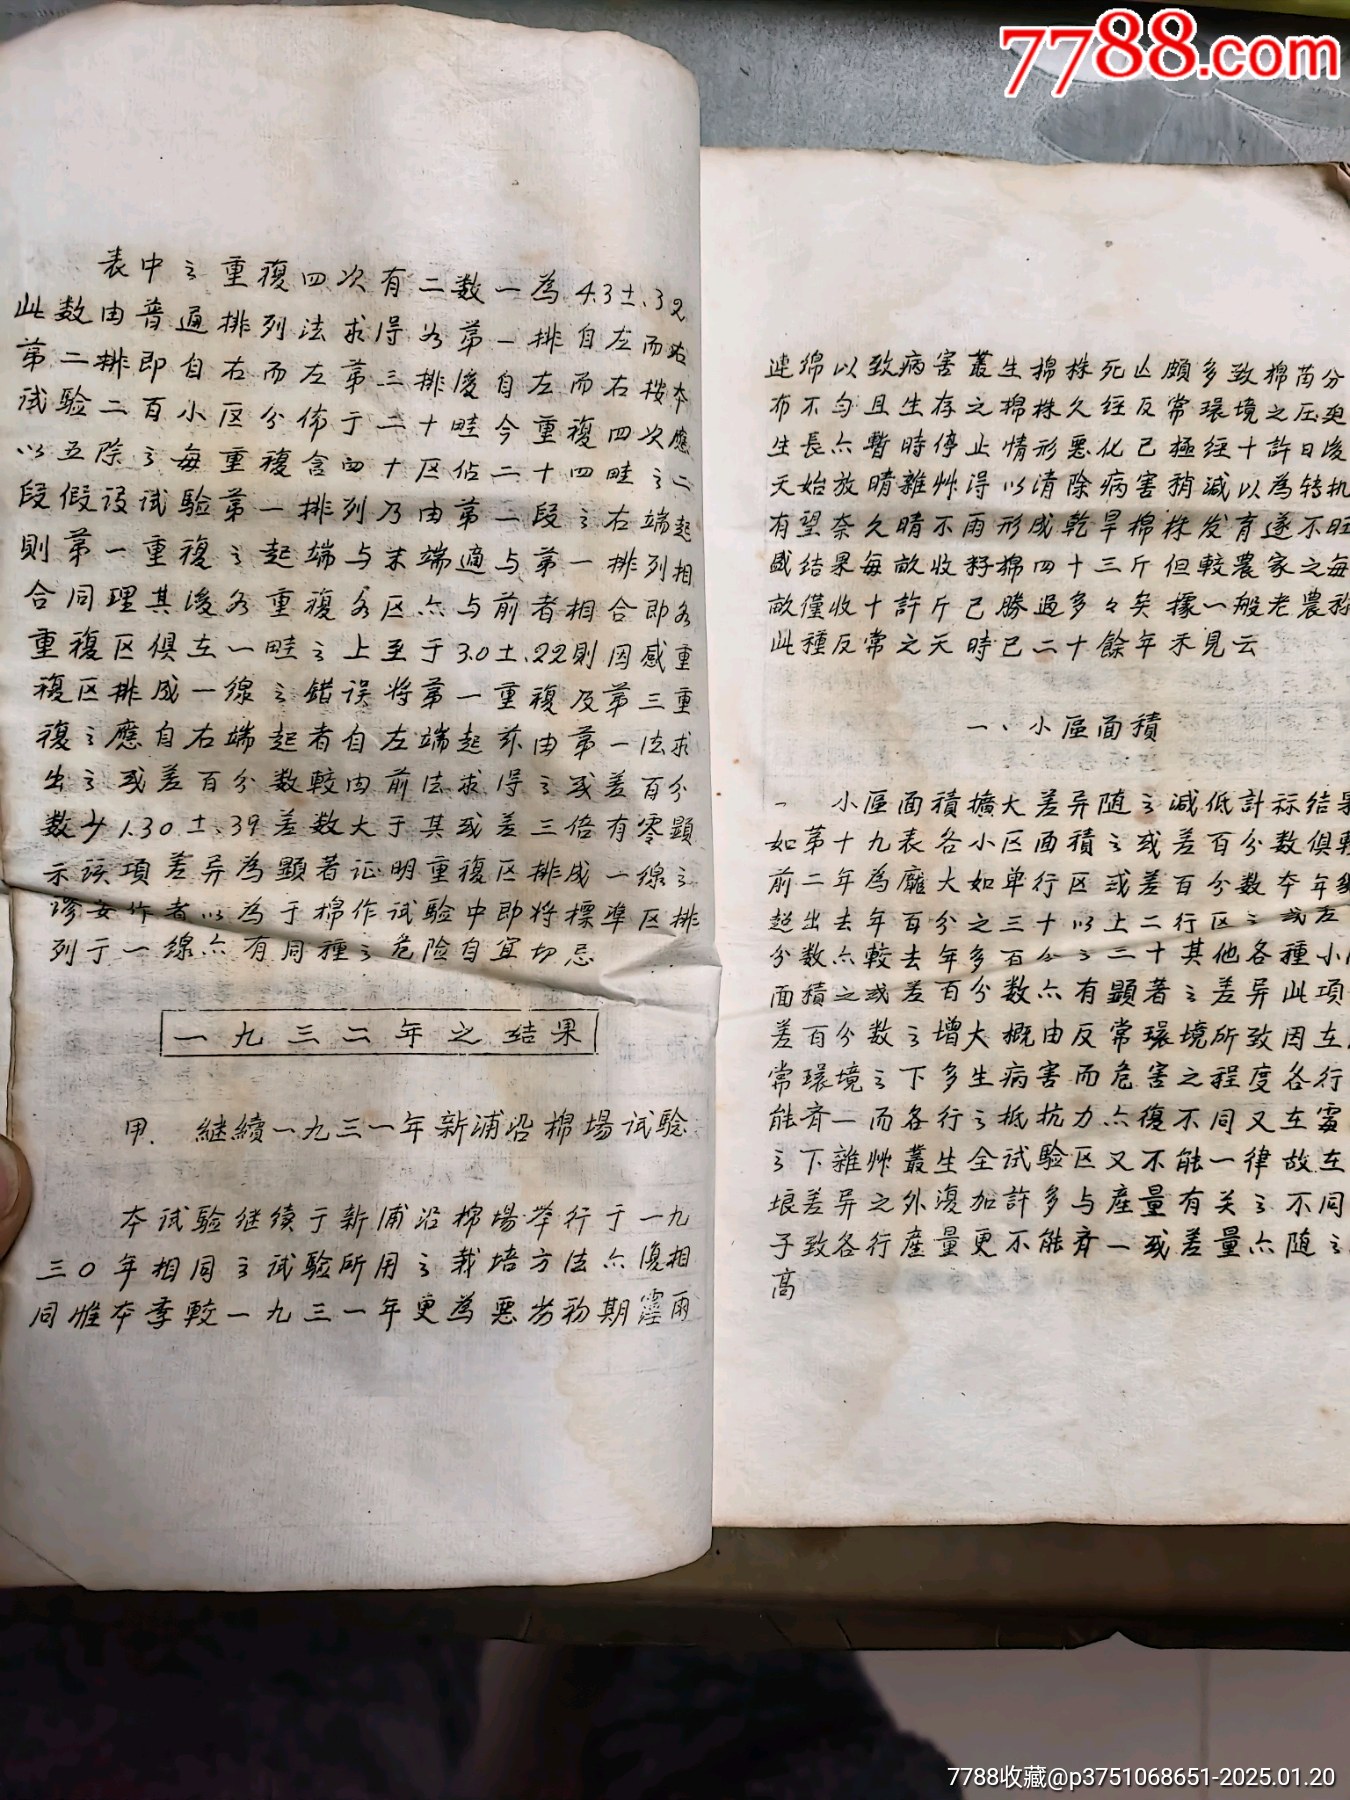 7788.com
表中之重複四次有二数一為4.3±.32
此数由普通排列法求得为第一排自左而右
第二排即自右而左第三排復自左而右按本
试验二百小区分佈于二十畦今重複四次應
以五除之每重複含四十区佔二十四畦之二
段假设试验第一排列乃由第二段之右端起
則第一重複之起端与末端適与第一排列相
合同理其後各重複各区亦与前者相合即各
重複区俱在一畦之上至于3.0±.22則因感重
複区排成一線之錯误将第一重複及第三重
複之應自右端起者自左端起算由第一法求
出之或差百分数較由前法求得之或差百分
数少1.30±.39差数大于其或差三倍有零顯
示该項差异為顯著证明重複区排成一線之
谬妄作者以為于棉作试验中即将標準区排
列于一線亦有同種之危险自宜切忌
一九三二年之结果
甲. 継續一九三一年新浦沿棉場试验
本试验继续于新浦沿棉場举行于一九
三〇年相同之试验所用之栽培方法亦復相
同惟本季較一九三一年更為惡劣初期霪雨
連绵以致病害叢生棉株死亡頗多致棉苗分
布不匀且生存之棉株久经反常環境之压迫
生長亦暫時停止情形悪化已極经十許日後
天始放晴雜艸得以清除病害稍减以為转机
有望奈久晴不雨形成乾旱棉株发育遂不旺
盛结果每畝收籽棉四十三斤但較農家之每
畝僅收十許斤已勝過多々矣據一般老農称
此種反常之天時已二十餘年未見云
一、小區面積
一 小區面積擴大差异随之减低計标结果
如第十九表各小区面積之或差百分数俱較
前二年為龐大如单行区或差百分数本年幾
超出去年百分之三十以上二行区之或差
分数亦較去年多百分之二十其他各種小
面積之或差百分数亦有顕著之差异此項
差百分数之增大概由反常環境所致因在
常環境之下多生病害而危害之程度各行
能齐一而各行之抵抗力亦復不同又在霪
之下雜艸叢生全试验区又不能一律故在
埌差异之外復加許多与産量有关之不同
子致各行産量更不能齐一或差量亦随之
高
7788收藏@p3751068651-2025.01.20